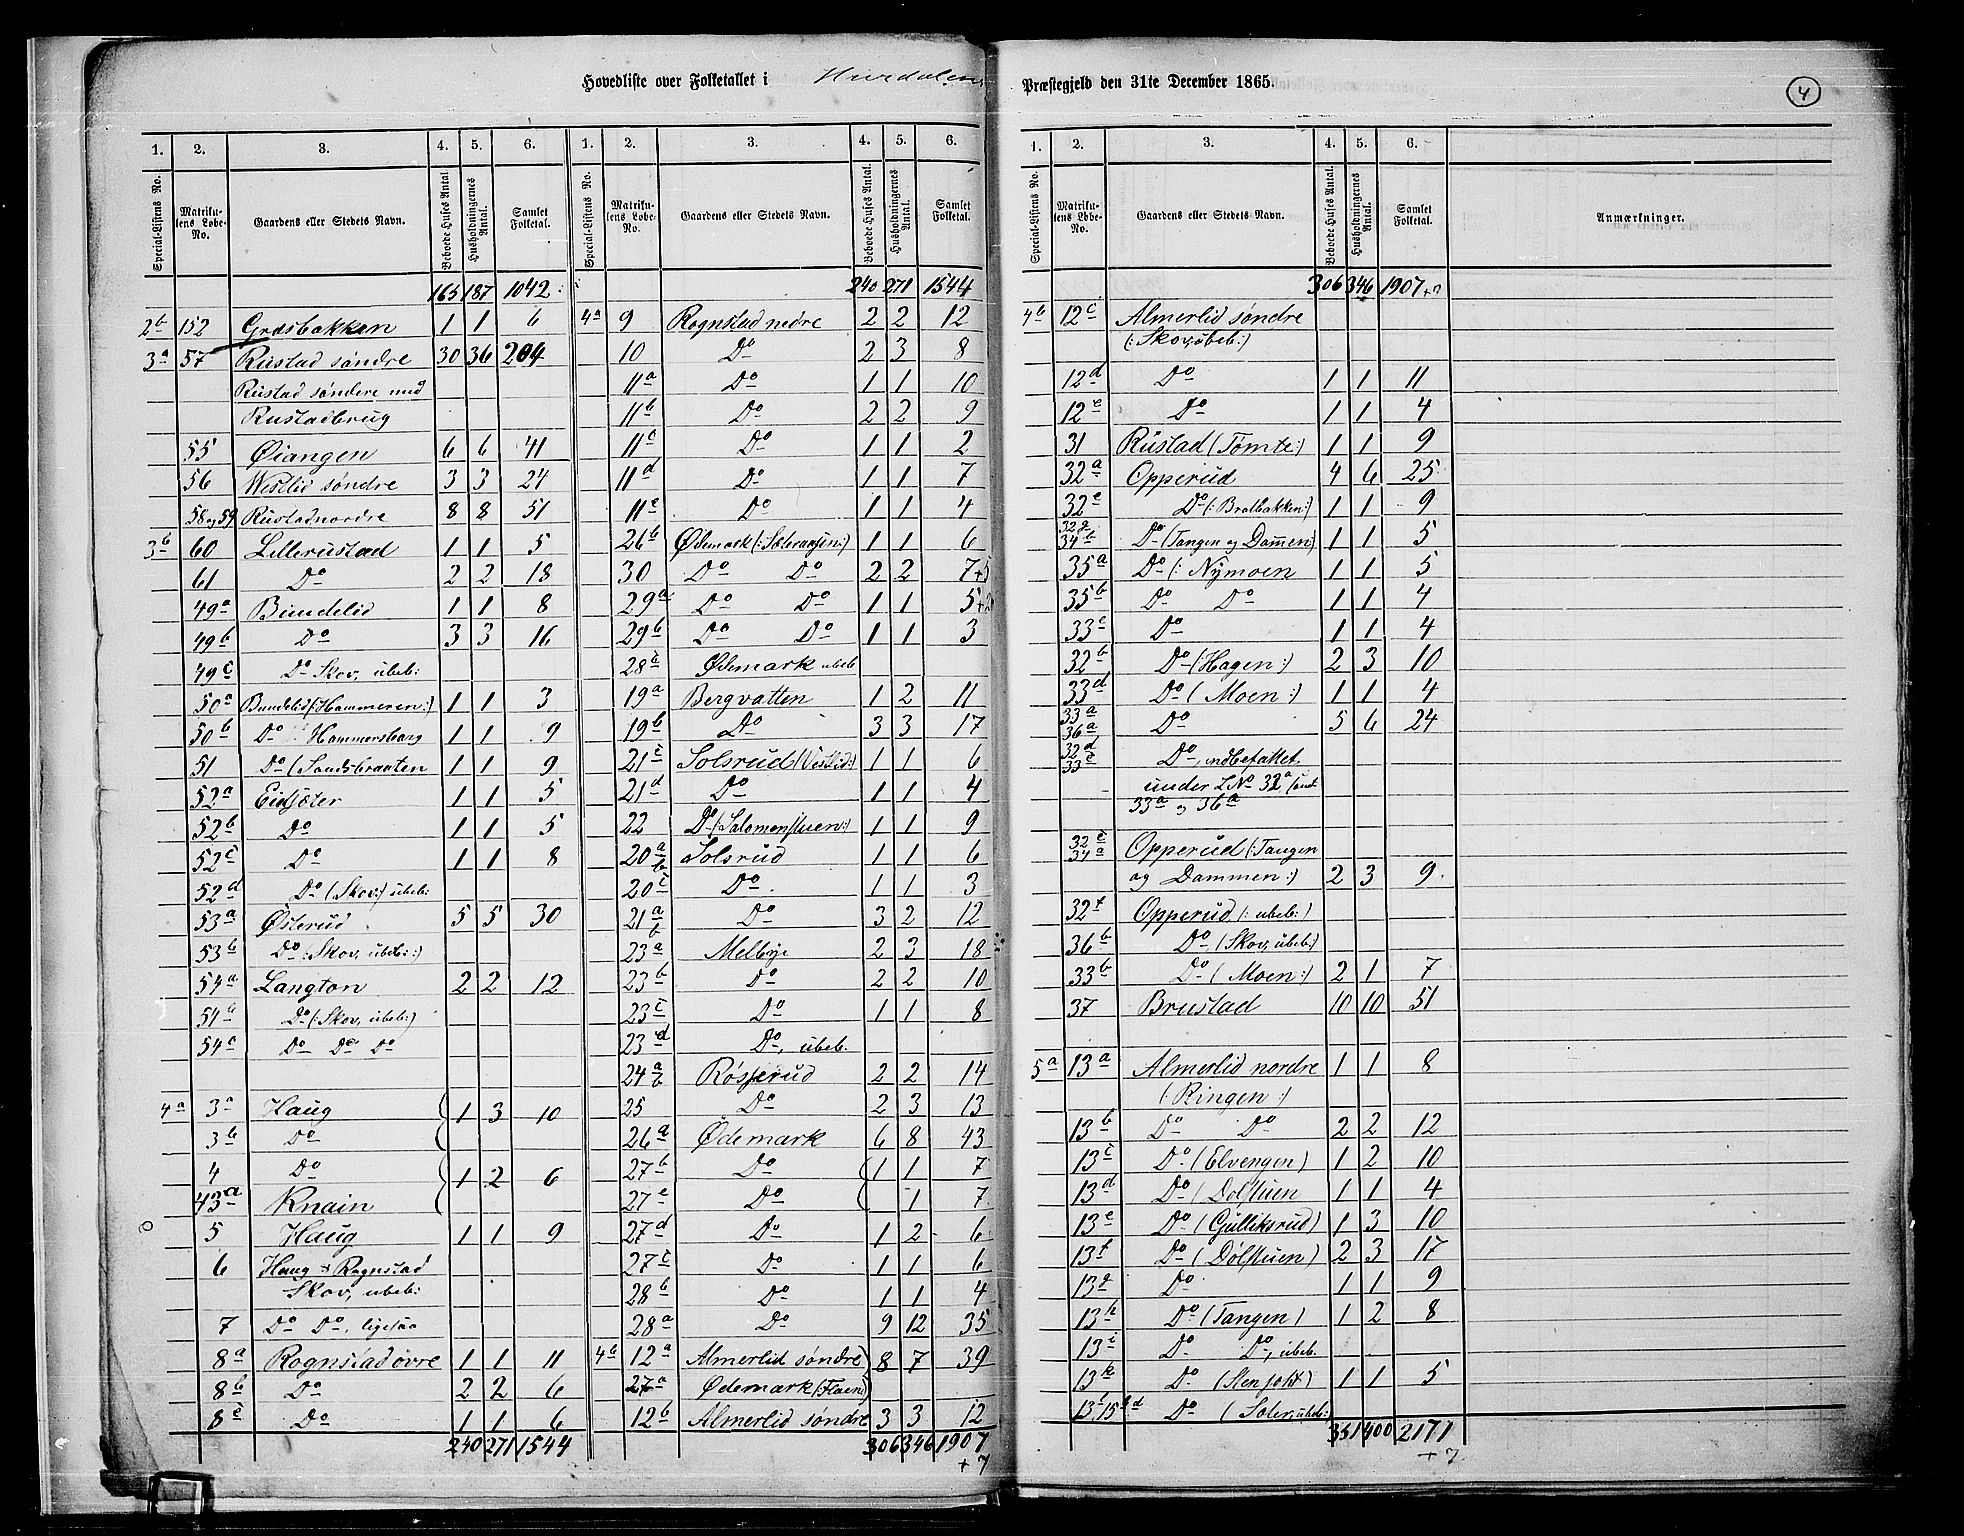 Hovedliste over Folketallet i Hurdalen Præstegjeld den 31te December 1865.
4
1. 2. 3. 4. 5. 6.
Special-Listens No. Matrikulens Løbe-No. Gaardens eller Stedets Navn. Beboede Huses Antal. Husholdningernes Antal. Samlet Folketal.
165 187 1042
2b 152 Græsbakken 1 1 6
3a 57 Rustad søndre 30 36 204
Rustad søndere med
Rustadbrug
55 Øiangen 6 6 41
56 Westlid søndre 3 3 24
58 og 59 Rustad nordre 8 8 51
3b 60 Lillerustad 1 1 5
61 Do 2 2 18
49a Bundelid 1 1 8
49b Do 3 3 16
49c Do Skov, ubeb:
50a Bundelid (Hammeren:) 1 1 3
50b Do Hammersborg 1 1 9
51 Do (Sandsbraaten 1 1 9
52a Eidsæter 1 1 5
52b Do 1 1 5
52c Do 1 1 8
52d Do (Skov:) ubeb:
53a Østerud 5 5 30
53b Do (:Skov, ubeb::)
54a Langton 2 2 12
54b Do (:Skov, ubeb:)
54c Do Do Do
4a 3a Haug 1 3 10
3b Do
4 Do 1 2 6
43a Knain
5 Haug 1 1 9
6 Haug & Rognstad
Skov, ubeb:
7 Do Do, ligesaa
8a Rognstad øvre 1 1 11
8b Do 2 2 6
8c Do 1 1 6
240 271 1544
1. 2. 3. 4. 5. 6.
Special-Listens No. Matrikulens Løbe-No. Gaardens eller Stedets Navn. Beboede Huses Antal. Husholdningernes Antal. Samlet Folketal.
240 271 1544
4a 9 Rognstad nedre 2 2 12
10 Do 2 3 8
11a Do 1 1 10
11b Do 2 2 9
11c Do 1 1 2
11d Do 1 1 7
11e Do 1 1 4
26b Ødemark (:Sæteraasen:) 1 1 6
30 Do Do 2 2 7+5
29a Do Do 1 1 5+2
29b Do Do 1 1 3
28c Ødemark ubeb
19a Bergvatten 1 2 11
19b Do 3 3 17
21c Solsrud (Vestlid:) 1 1 6
21d Do 1 1 4
22 Do (:Salomonstuen:) 1 1 9
20a b Solsrud 1 1 6
20c Do 1 1 3
21a b Do 3 2 12
23a Melbye 2 3 18
23b Do 2 2 10
23c Do 1 1 8
23d Do, ubeb.
24a b Røsserud 2 2 14
25 Do 2 3 13
26a Ødemark 6 8 43
27b Do 1 1 7
27e Do 1 7
27d Do 1 2 6
27c Do 1 1 6
28b Do 1 1 4
28a Do 9 12 35
4b 12a Almerlid søndre 8 7 39
27a Ødemark (Flaen)
12b Almerlid søndre 3 3 12
306 346 1907
+7
1. 2. 3. 4. 5. 6.
Special-Listens No. Matrikulens Løbe-No. Gaardens eller Stedets Navn. Beboede Huses Antal. Husholdningernes Antal. Samlet Folketal. Anmærkninger.
306 346 1907+7
4b 12c Almerlid søndre
(:Skov, ubeb:)
12d Do 1 1 11
12e Do 1 1 4
31 Rustad (Tømte:) 1 1 9
32a Opperud 4 6 25
32e Do (:Bratbakken:) 1 1 9
32g 34b Do (Tangen og Dammen) 1 1 5
35a Do (:Nymoen 1 1 5
35b Do Do 1 1 4
33c Do 1 1 4
32b Do (Hagen:) 2 3 10
33d Do (Moen:) 1 1 4
33a 36a Do 5 6 24
32d 33e Do, indbefattet
under LNo 32a samt
33a og 36a
32c 34a Opperud (:Tangen
og Dammen:) 2 3 9
32f Opperud (:ubeb:)
36b Do (Skov, ubeb:)
33b Do (Moen:) 2 1 7
37 Brustad 10 10 51
5a 13a Almerlid nordre 1 1 8
(:Ringen:)
13b Do Do 2 2 12
13c Do (Elvengen) 1 2 10
13d Do (Dølstuen 1 1 4
13e Do (Gulliksrud) 1 3 10
13f Do (Dølstuen) 2 3 17
13g Do 1 1 9
13h Do (Tangen) 1 2 8
13i Do Do, ubeb.
13k Do (Stenjohs) 1 1 5
13l 15d Do (Sæter, ubeb:
351 400 2171
+7